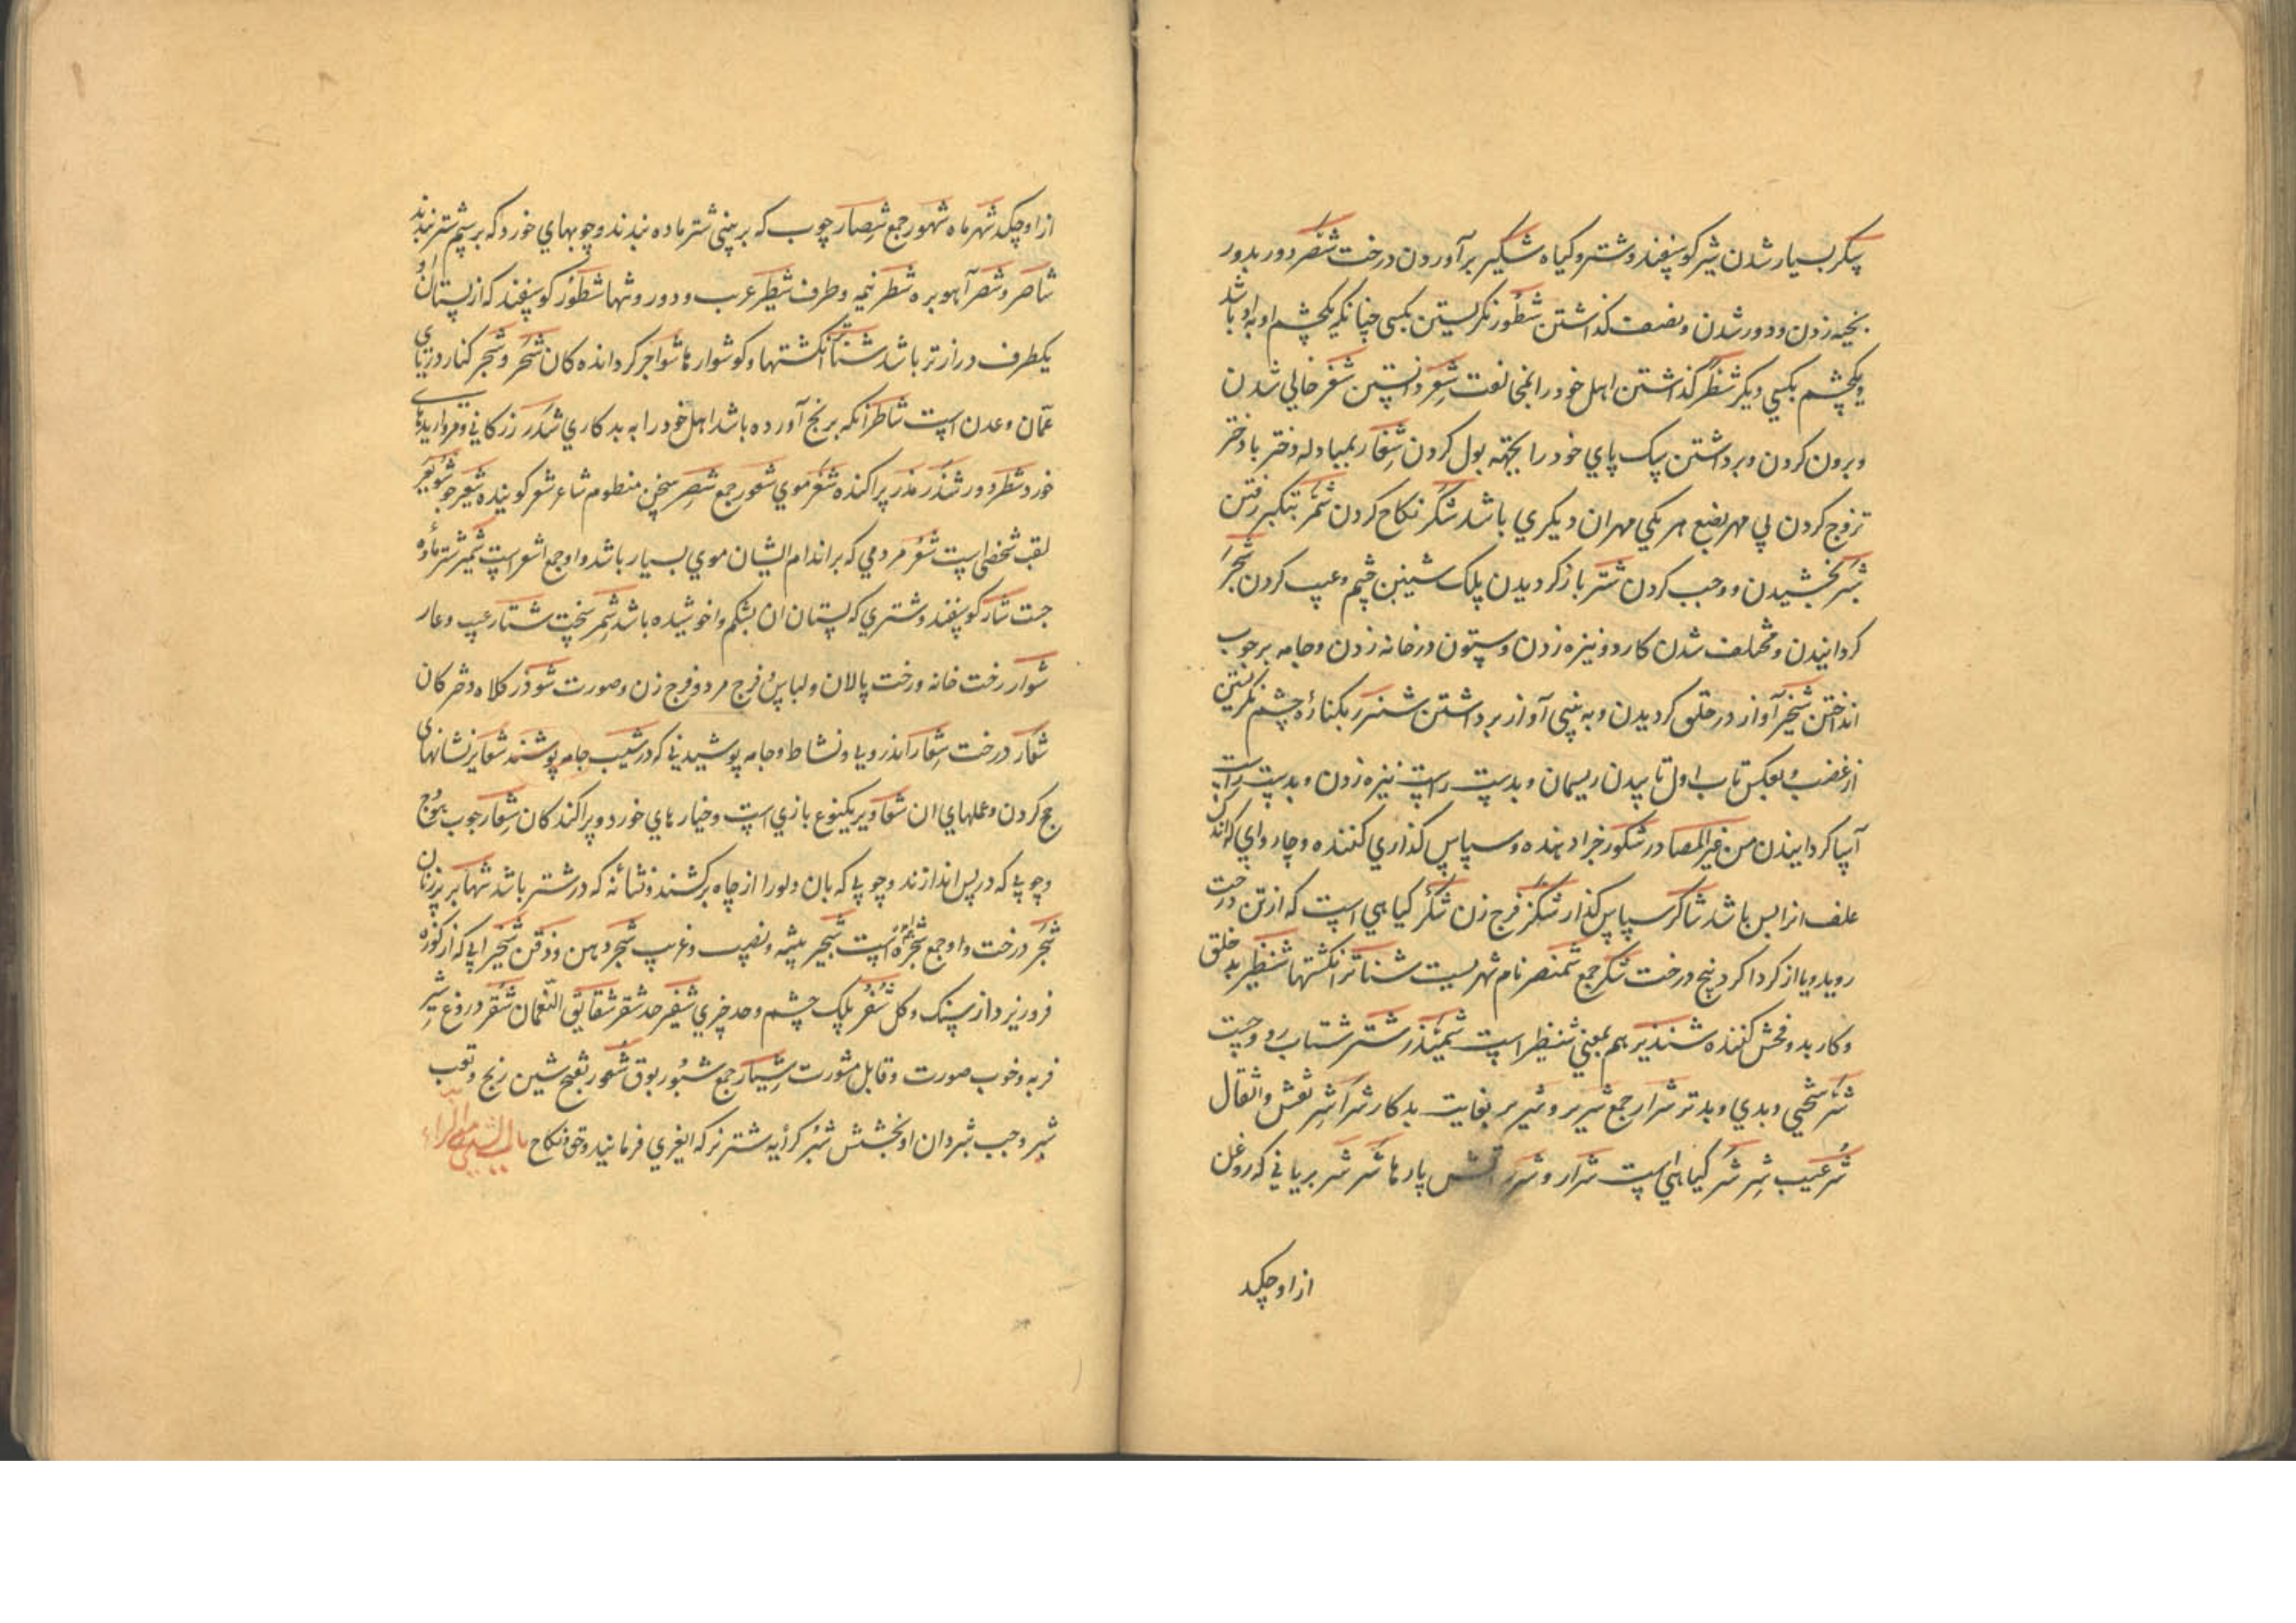 شکر بسیار شدن شیر کوسپفند و شتر و کیاه شکیر برآوردن درخت شصر دور بدور
بخیه زدن و دور شدن و بضعف کذاشتن شطور نکرلیستن بکسی چنانکه یکچشم او به او باشد
و یکچشم بکسي دیکر شطر کذاشتن اهل خود را بمخالفت شعر دانستن شغر خالي شدن
و برون کردن و برداشتن سپک پاي خود را بجهته بول کردن شغار بمبادله دختر با دختر
تزوج کردن بی مهر بضع هر یکي مهر ان دیکري باشد شکر نکاح کردن شمر بتکبر رفتن
شبر بخشیدن و وجب کردن شتر باز کردیدن پلک شیبن چشم و عیب کردن شجر
کردانیدن و مختلف شدن کار و نیزه زدن و ستون در خانه زدن و جامه بر چوب
انداختن شخیر آواز در حلق کردیدن و به بینی آواز برداشتن شنزر بکنارهٔ چشم نکریستن
از غضب و بعکس تاب اول تابیدن ریسمان و بدست راست نیزه زدن و بدست راست
آسیا کردانیدن من غیر المصادر شکور جزا دهنده و سپاس کذاري کننده و چارواي که اندک
علف انرا بس باشد شاکر سپاس کذار شکر فرج زن شکر کیاهی است که از تن درخت
روید و یا از کردا کرد بیخ درخت شکر جمع شمنصر نام شهریست شناتر انکشتها شنظیر بد خلق
و کار بد و فحش کننده شنذیر هم بمعني شنظیر است شمیذر شتر شتاب رو و چست
شر سختي و بدي و بدتر شرار جمع شریر و شریر بغایت بدکار شراشر نفس و اثقال
شر عیب شرشر کیاهی است شرار و شرر آتش پارها شرشر بریانی که روغن
از او چکد
از او چکد شهر ماه شهور جمع شصار چوب که بر بینی شتر ماده بندند و چوبهاي خورد که بر بشم شتر بندند
شاصر و شصر آهو بره شطر نیمه و طرف شطیر غریب و دور و تنها شطور کوسفند که از پستان او
یکطرف درازتر باشد شناتر انکشتها و کوشوارها شواجر کردانده کان شحر و شجر کنار دریاي
عمّان و عدن است شاطر آنکه برنج آورده باشد اهل خود را به بدکاري شذر زر کانی و مرواریدهاي
خورد شطر دور شذر مذر پراکنده شعر موي شعور جمع شعر سخن منظوم شاعر شعر کوینده شعیر جو شویعر
لقب شخصی است شعر مردمي که بر اندام ایشان موي بسیار باشد و او جمع اشعر است شمیر شتر ماده
جست شار کوسفند و شتري که پستان ان بشکم واخوشیده باشد شمر سخت شتار عیب و عار
شوار رخت خانه و رخت پالان و لباس و فرج مرد و فرج زن و صورت شوذر کلاه دخترکان
شعار درخت شعار اندرونی و نشاط و جامه پوشیدنی که در شیب جامه پوشند شعایر نشانهای
حج کردن و عملهاي ان شعاریر یکنوع بازي است و خیارهاي خورد و پراکند کان شعار چوب هودج
و چوبی که در پس اندازند و چوبی که بان دلو را از چاه برکشند و نشانه که در شتر باشد شهابر پیرزنان
شجر درخت و او جمع شجرة است شجیر بیشه و نصیب و غریب شجر دهن و ذقن شخیر ابی که از کوزه
فرو ریزد از سنک و کل شفر پلک چشم و حد چیزي شفیر حد شقر شقایق النعمان شقر دروغ شیر
فربه و خوب صورت و قابل مشورت شیار جمع شبور بوق شعور بفتح شین رنج و تعب
شبر وجب شبر دادن او بخشش شبر کرایه شتر نر که ابغري فرمانید و حق نکاح باب الشین مع الراء